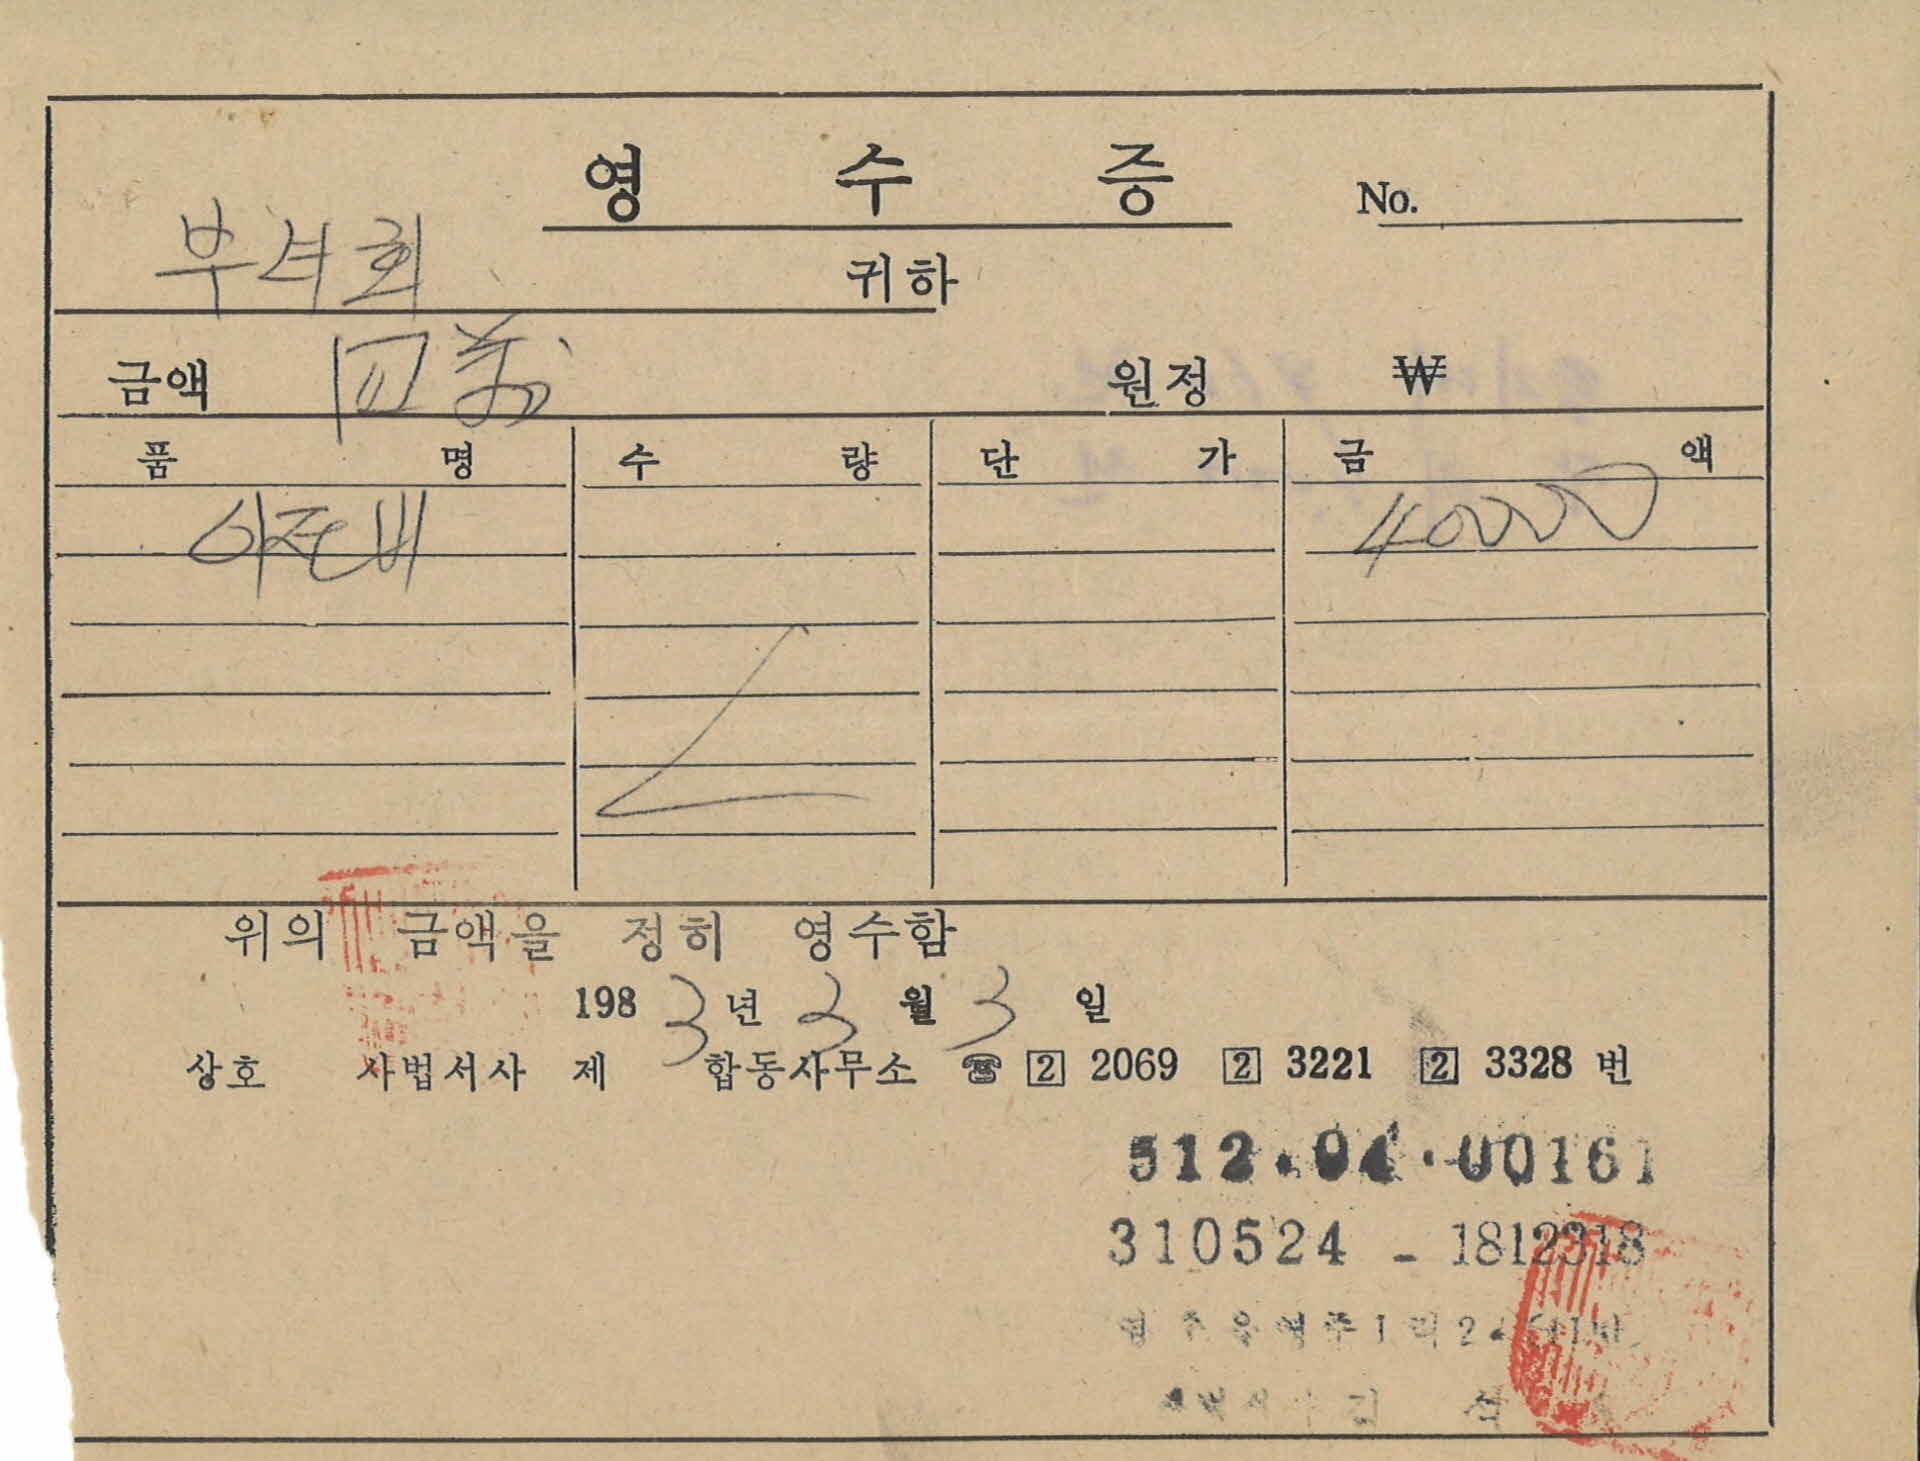 영 수 증 No.
부녀회 귀하
금액 四萬 원정 ₩
품 명 수 량 단 가 금 액
이전비 40000
위의 금액을 정히 영수함
1983년 3월 3일
상호 사법서사 제 합동사무소 ☎ 2 2069 2 3221 2 3328 번
512.04.00161
310524 - 1812318